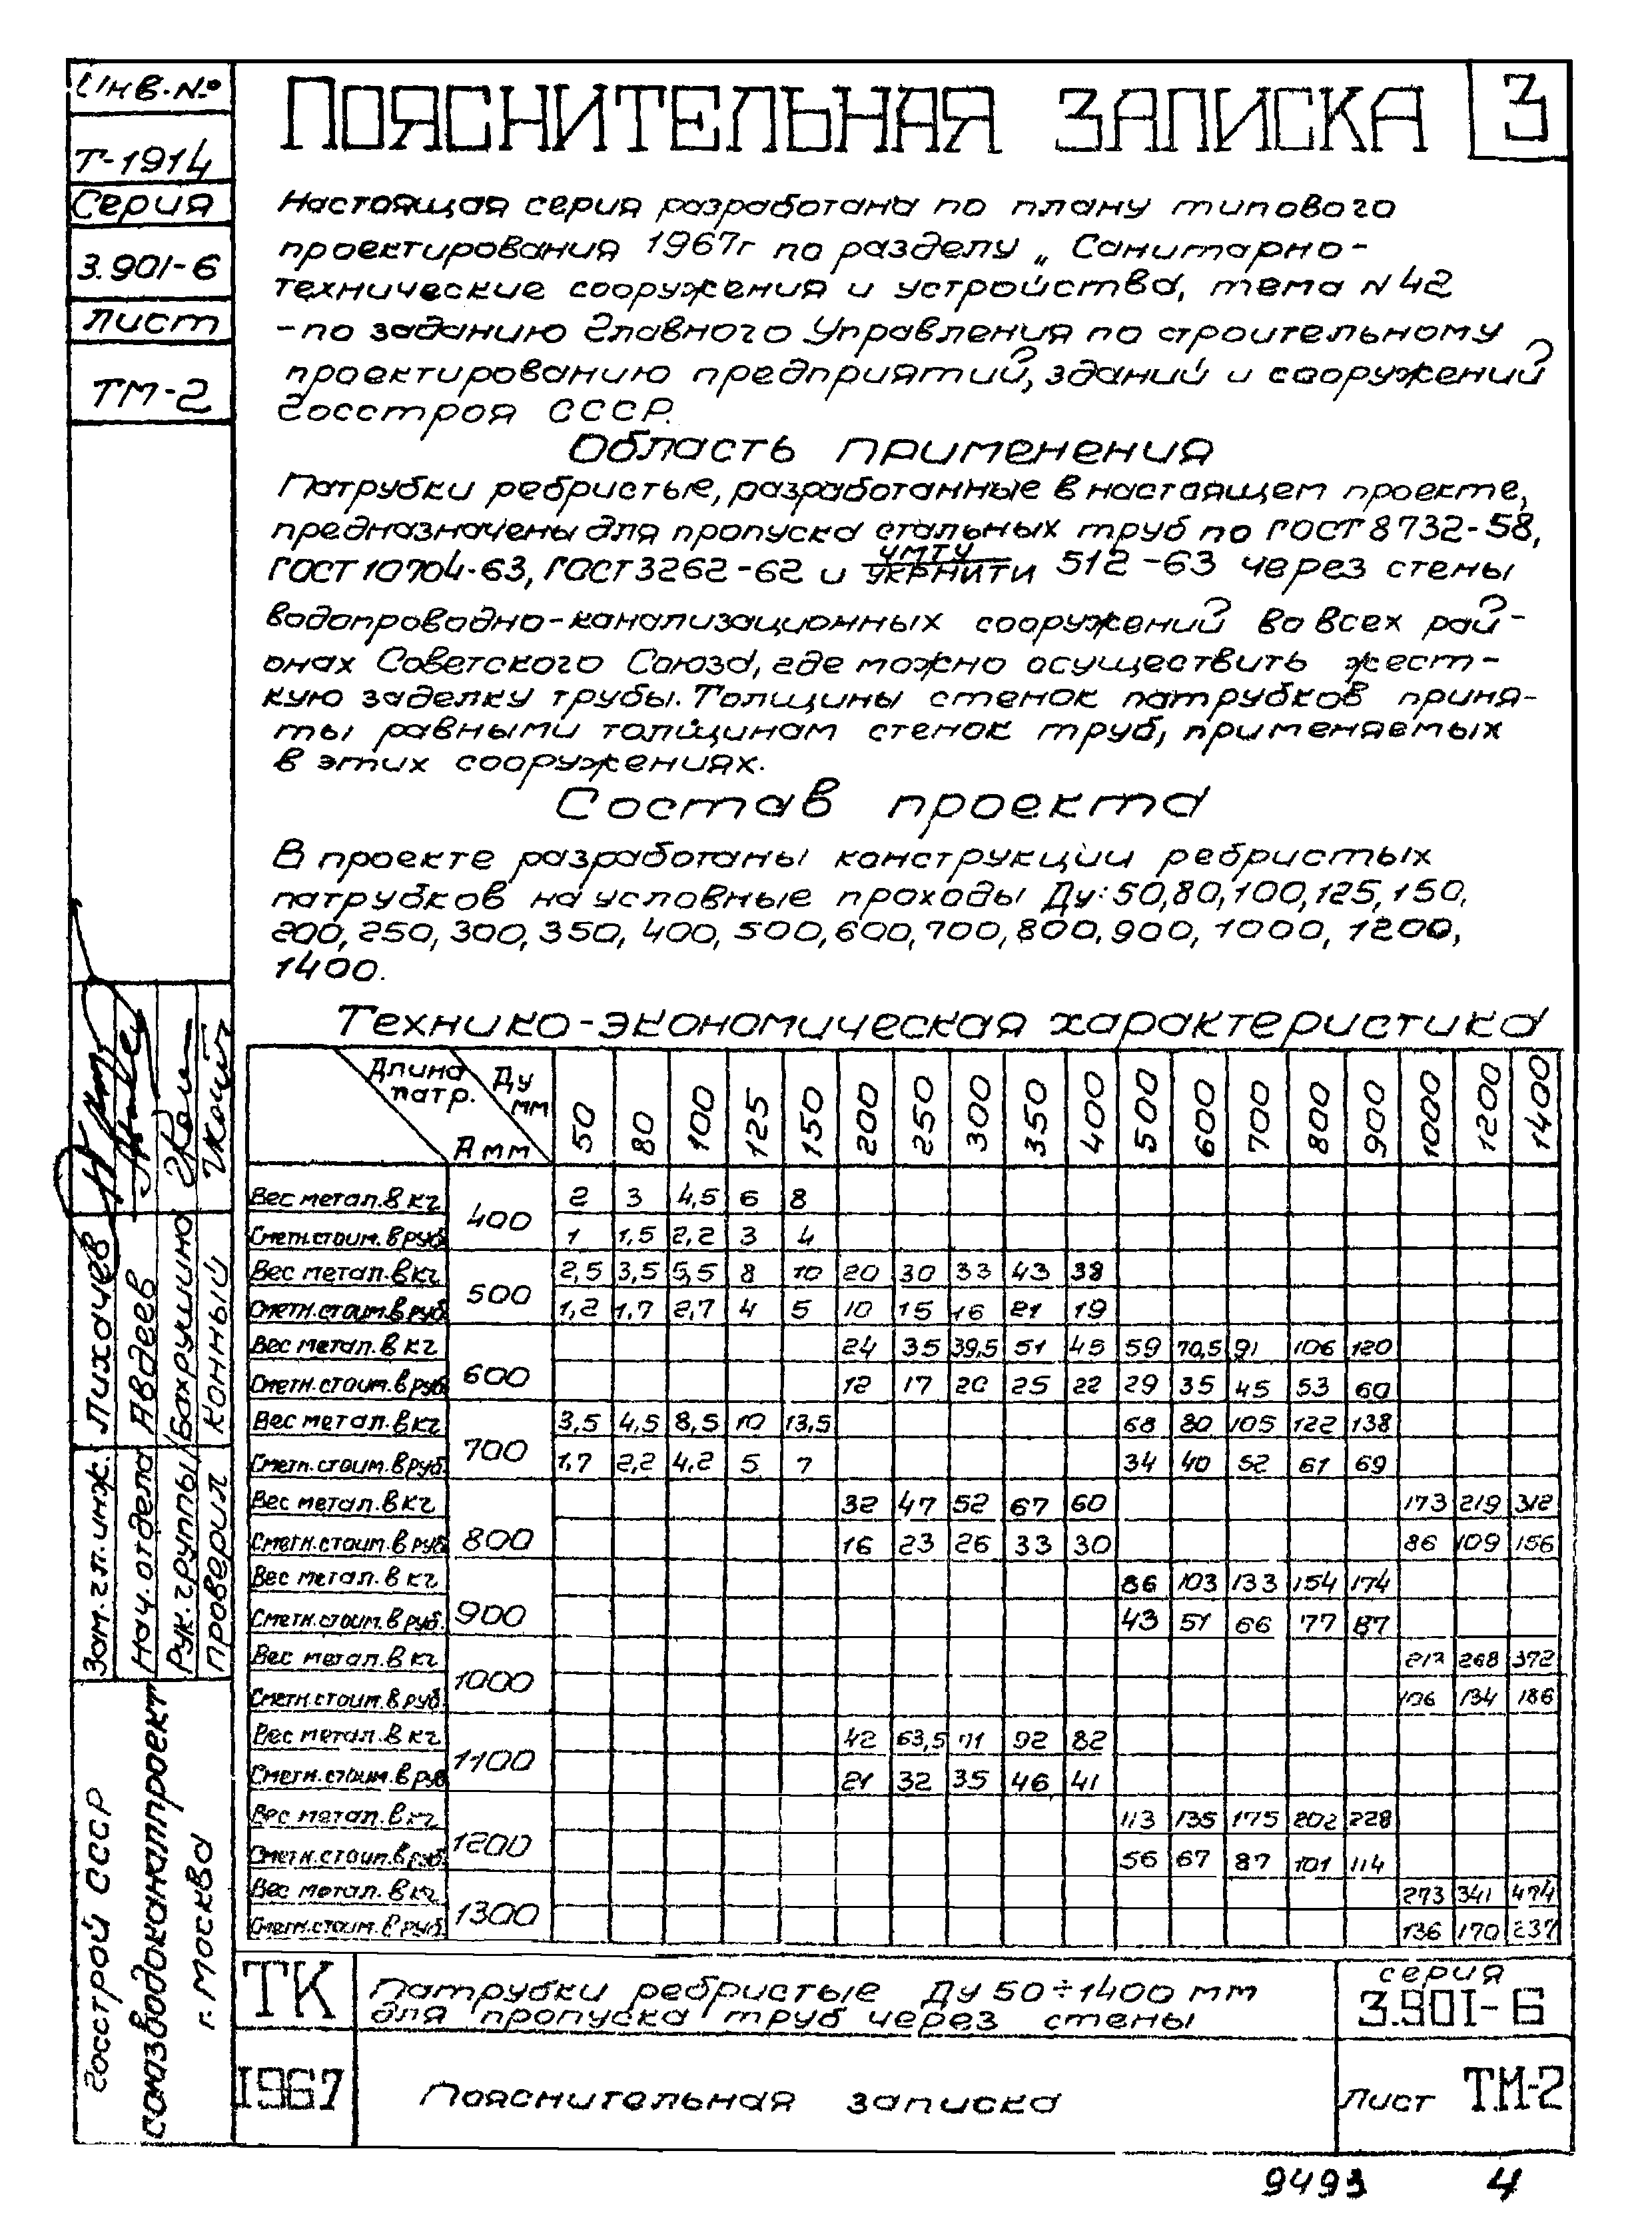 Инв.№
Т-1914
Серия
3.901-6
лист
ТМ-2
Пояснительная записка
3
Настоящая серия разработана по плану типового
проектирования 1967г по разделу „ Санитарно-
технические сооружения и устройства, тема N 42
-по заданию Главного Управления по строительному
проектированию предприятий, зданий и сооружений
Госстроя СССР.
Область применения
Патрубки ребристые, разработанные в настоящем проекте,
предназначены для пропуска стальных труб по ГОСТ 8732-58,
ГОСТ 10704-63, ГОСТ 3262-62 и ЧМТУ/УКРНИТИ 512-63 через стены
водопроводно-канализационных сооружений во всех рай-
онах Советского Союза, где можно осуществить жест-
кую заделку трубы. Толщины стенок патрубков приня-
ты равными толщинам стенок труб, применяемых
в этих сооружениях.
Состав проекта
В проекте разработаны конструкции ребристых
патрубков на условные проходы Ду: 50, 80, 100, 125, 150,
200, 250, 300, 350, 400, 500, 600, 700, 800, 900, 1000, 1200,
1400.
Технико-экономическая характеристика
Длина патр. Ду мм 50 80 100 125 150 200 250 300 350 400 500 600 700 800 900 1000 1200 1400
А мм
Вес метал. в кг 400 2 3 4,5 6 8
Сметн.стоим. в руб 1 1,5 2,2 3 4
Вес метал. в кг 500 2,5 3,5 5,5 8 10 20 30 33 43 38
Сметн.стоим. в руб 1,2 1,7 2,7 4 5 10 15 16 21 19
Вес метал. в кг 600 24 35 39,5 51 45 59 70,5 91 106 120
Сметн.стоим. в руб 12 17 20 25 22 29 35 45 53 60
Вес метал. в кг 700 3,5 4,5 8,5 10 13,5 68 80 105 122 138
Сметн.стоим. в руб. 1,7 2,2 4,2 5 7 34 40 52 61 69
Вес метал. в кг 800 32 47 52 67 60 173 219 312
Сметн.стоим. в руб 16 23 26 33 30 86 109 156
Вес метал. в кг 900 86 103 133 154 174
Сметн.стоим. в руб. 43 51 66 77 87
Вес метал. в кг 1000 212 268 372
Сметн.стоим. в руб 106 134 186
Вес метал. в кг 1100 42 63,5 71 92 82
Сметн.стоим. в руб 21 32 35 46 41
Вес метал. в кг 1200 113 135 175 202 228
Сметн.стоим. в руб. 56 67 87 101 114
Вес метал. в кг 1300 273 341 474
Сметн.стоим. в руб. 136 170 237
Зам.гл.инж. Лихачев
Нач. отдела Авдеев
Рук. группы Бахрушина
Проверил Конный
Госстрой СССР
Союзводоканалпроект
г. Москва
ТК
Патрубки ребристые Ду 50÷1400 мм
для пропуска труб через стены
серия
3.901-6
1967
Пояснительная записка
Лист ТМ-2
9493 4